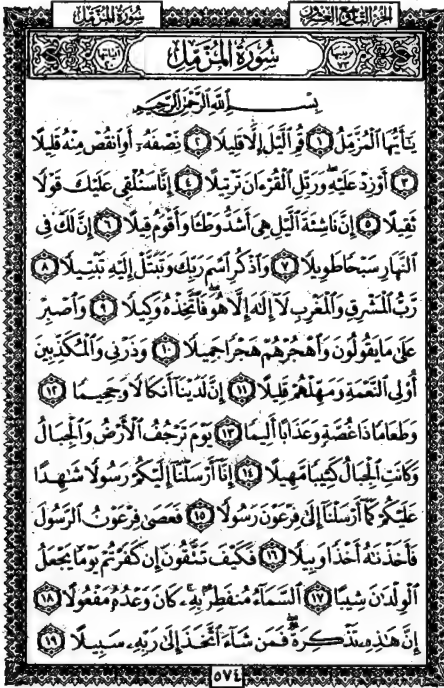 سُورَةُ المُزَّمِّلِ
سُورَةُ المُزَّمِّلِ
بِسْمِ اللَّهِ الرَّحْمَٰنِ الرَّحِيمِ
يَٰٓأَيُّهَا ٱلْمُزَّمِّلُ ١ قُمِ ٱلَّيْلَ إِلَّا قَلِيلًا ٢ نِّصْفَهُۥٓ أَوِ ٱنقُصْ مِنْهُ قَلِيلًا
٣ أَوْ زِدْ عَلَيْهِ وَرَتِّلِ ٱلْقُرْءَانَ تَرْتِيلًا ٤ إِنَّا سَنُلْقِى عَلَيْكَ قَوْلًا
ثَقِيلًا ٥ إِنَّ نَاشِئَةَ ٱلَّيْلِ هِىَ أَشَدُّ وَطْـًٔا وَأَقْوَمُ قِيلًا ٦ إِنَّ لَكَ فِى
ٱلنَّهَارِ سَبْحًا طَوِيلًا ٧ وَٱذْكُرِ ٱسْمَ رَبِّكَ وَتَبَتَّلْ إِلَيْهِ تَبْتِيلًا ٨
رَّبُّ ٱلْمَشْرِقِ وَٱلْمَغْرِبِ لَآ إِلَٰهَ إِلَّا هُوَ فَٱتَّخِذْهُ وَكِيلًا ٩ وَٱصْبِرْ
عَلَىٰ مَا يَقُولُونَ وَٱهْجُرْهُمْ هَجْرًا جَمِيلًا ١٠ وَذَرْنِى وَٱلْمُكَذِّبِينَ
أُو۟لِى ٱلنَّعْمَةِ وَمَهِّلْهُمْ قَلِيلًا ١١ إِنَّ لَدَيْنَآ أَنكَالًا وَجَحِيمًا ١٢
وَطَعَامًا ذَا غُصَّةٍ وَعَذَابًا أَلِيمًا ١٣ يَوْمَ تَرْجُفُ ٱلْأَرْضُ وَٱلْجِبَالُ
وَكَانَتِ ٱلْجِبَالُ كَثِيبًا مَّهِيلًا ١٤ إِنَّآ أَرْسَلْنَآ إِلَيْكُمْ رَسُولًا شَٰهِدًا
عَلَيْكُمْ كَمَآ أَرْسَلْنَآ إِلَىٰ فِرْعَوْنَ رَسُولًا ١٥ فَعَصَىٰ فِرْعَوْنُ ٱلرَّسُولَ
فَأَخَذْنَٰهُ أَخْذًا وَبِيلًا ١٦ فَكَيْفَ تَتَّقُونَ إِن كَفَرْتُمْ يَوْمًا يَجْعَلُ
ٱلْوِلْدَٰنَ شِيبًا ١٧ ٱلسَّمَآءُ مُنفَطِرٌۢ بِهِۦ كَانَ وَعْدُهُۥ مَفْعُولًا ١٨
إِنَّ هَٰذِهِۦ تَذْكِرَةٌ فَمَن شَآءَ ٱتَّخَذَ إِلَىٰ رَبِّهِۦ سَبِيلًا ١٩
٥٧٤